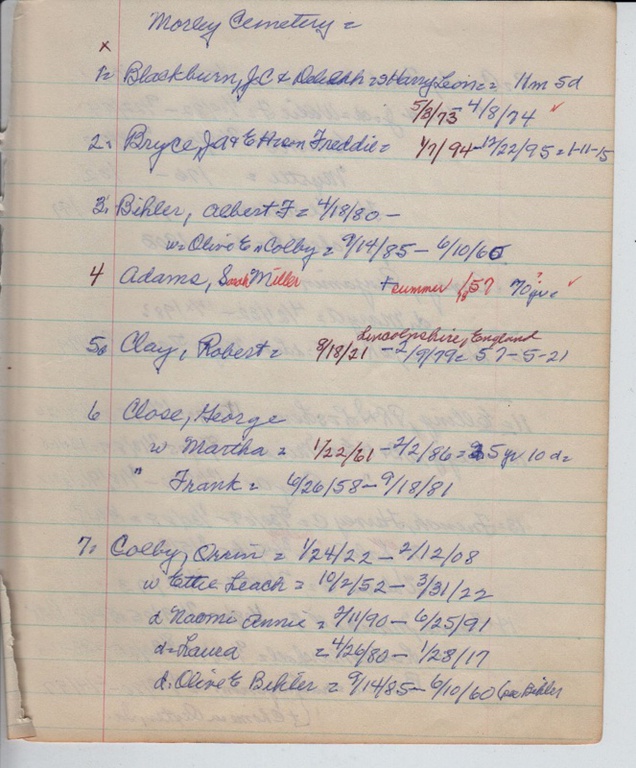 Morley Cemetery =
x
1= Blackburn, J.C & = s Harry Leon = 11m 5d
5/3/73 - 4/8/74 ✓
2. Bryce, Ja & E Freddie = 1/7/94 - 12/22/95 = 1-11-15
3. Bihler, Albert F = 4/18/80 -
w = Olive E n Colby = 9/14/85 - 6/10/60
4 Adams, Sarah Miller + summer 57 70 yr ? ✓
Lincolnshire, England
5. Clay, Robert = 8/18/21 - 2/9/79 = 57-5-21
6 Close, George
w Martha = 1/22/61 - 2/2/86 = 25 yr 10 d =
" Frank = 6/26/58 - 9/18/81
7= Colby, Orrin = 1/24/22 - 2/12/08
w Ettie Leach = 10/2/52 - 3/31/22
d Naomi Annie = 2/11/90 - 6/25/91
d = Laura = 4/26/80 - 1/28/17
d. Olive E Bihler = 9/14/85 - 6/10/60 (see Bihler